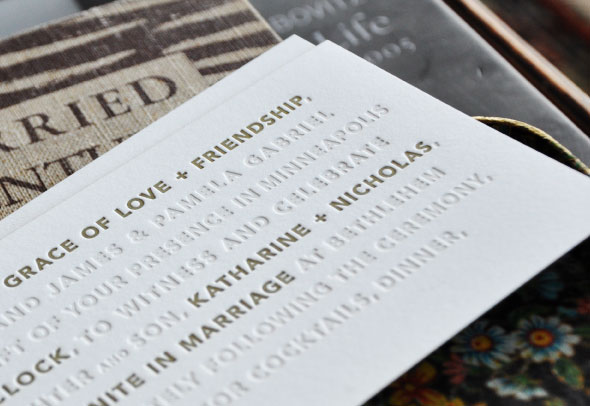 BOVITZ
Life
2005
RRIED
GRACE OF LOVE + FRIENDSHIP,
AND JAMES & PAMELA GABRIEL
FT OF YOUR PRESENCE IN MINNEAPOLIS
CLOCK, TO WITNESS AND CELEBRATE
HTER AND SON, KATHARINE + NICHOLAS,
NITE IN MARRIAGE AT BETHLEHEM
ELY FOLLOWING THE CEREMONY,
FOR COCKTAILS, DINNER,